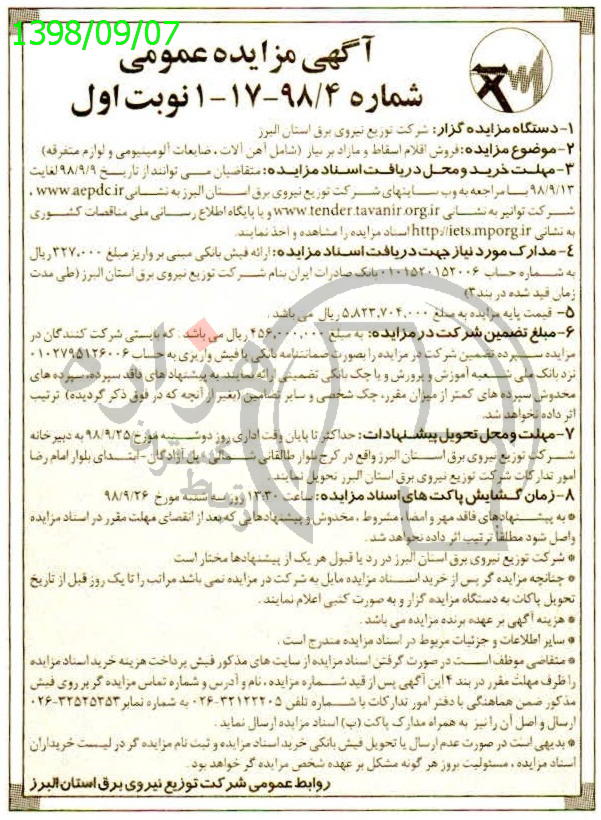 1398/09/07
آگهی مزایده عمومی
شماره ۹۸/۴-۱۷-۱ نوبت اول
۱- دستگاه مزایده گزار: شرکت توزیع نیروی برق استان البرز
۲- موضوع مزایده: فروش اقلام اسقاط و مازاد بر نیاز (شامل آهن آلات، ضایعات آلومینیومی و لوازم متفرقه)
۳- مهلت خرید و محل دریافت اسناد مزایده: متقاضیان می توانند از تاریخ ۹۸/۹/۹ لغایت
۹۸/۹/۱۳ با مراجعه به وب سایتهای شرکت توزیع نیروی برق استان البرز به نشانی www.aepdc.ir ،
شرکت توانیر به نشانی www.tender.tavanir.org.ir و یا پایگاه اطلاع رسانی ملی مناقصات کشوری
به نشانی http://iets.mporg.ir اسناد مزایده را مشاهده و اخذ نمایند.
۴- مدارک مورد نیاز جهت دریافت اسناد مزایده: ارائه فیش بانکی مبنی بر واریز مبلغ ۳۲۷،۰۰۰ ریال
به شماره حساب ۰۱۰۱۵۲۰۱۵۲۰۰۶ بانک صادرات ایران بنام شرکت توزیع نیروی برق استان البرز (طی مدت
زمان قید شده در بند ۳)
۵- قیمت پایه مزایده به مبلغ ۵،۸۲۳،۷۰۴،۰۰۰ ریال می باشد.
۶- مبلغ تضمین شرکت در مزایده: به مبلغ ۴۵۶،۰۰۰،۰۰۰ ریال می باشد. که بایستی شرکت کنندگان در
مزایده سپرده تضمین شرکت در مزایده را بصورت ضمانتنامه بانکی یا فیش واریزی به حساب ۰۱۰۲۷۹۵۱۲۶۰۰۶
نزد بانک ملی شعبه آموزش و پرورش و یا چک بانکی تضمینی ارائه نمایند. به پیشنهاد های فاقد سپرده، سپرده های
مخدوش سپرده های کمتر از میزان مقرر، چک شخصی و سایر تضامین (بغیر از آنچه که در فوق ذکر گردیده) ترتیب
اثر داده نخواهد شد.
۷- مهلت و محل تحویل پیشنهادات: حداکثر تا پایان وقت اداری روز دوشنبه مورخ ۹۸/۹/۲۵ به دبیرخانه
شرکت توزیع نیروی برق استان البرز واقع در کرج بلوار طالقانی شمالی - پل آزادگان - ابتدای بلوار امام رضا
امور تدارکات شرکت توزیع نیروی برق استان البرز تحویل نمایند.
۸- زمان گشایش پاکت های اسناد مزایده: ساعت ۱۳:۳۰ روز سه شنبه مورخ ۹۸/۹/۲۶
* به پیشنهادهای فاقد مهر و امضا، مشروط ، مخدوش و پیشنهادهایی که بعد از انقضای مهلت مقرر در اسناد مزایده
واصل شود مطلقا ترتیب اثر داده نخواهد شد.
* شرکت توزیع نیروی برق استان البرز در رد یا قبول هر یک از پیشنهادها مختار است
* چنانچه مزایده گر پس از خرید اسناد مزایده مایل به شرکت در مزایده نمی باشد مراتب را تا یک روز قبل از تاریخ
تحویل پاکات به دستگاه مزایده گزار و به صورت کتبی اعلام نمایند.
* هزینه آگهی بر عهده برنده مزایده می باشد.
* سایر اطلاعات و جزئیات مربوط در اسناد مزایده مندرج است.
* متقاضی موظف است در صورت گرفتن اسناد مزایده از سایت های مذکور فیش پرداخت هزینه خرید اسناد مزایده
را ظرف مهلت مقرر در بند ۴ این آگهی پس از قید شماره مزایده، نام و آدرس و شماره تماس مزایده گر بر روی فیش
مذکور ضمن هماهنگی با دفتر امور تدارکات با شماره تلفن ۳۲۱۲۲۲۰۵-۰۲۶ به شماره نمابر ۳۲۵۲۵۳۵۳-۰۲۶
ارسال و اصل آن را نیز به همراه مدارک پاکت (ب) اسناد مزایده ارسال نماید.
* بدیهی است در صورت عدم ارسال یا تحویل فیش بانکی خرید اسناد مزایده و ثبت نام مزایده گر در لیست خریداران
اسناد مزایده، مسئولیت بروز هر گونه مشکل بر عهده شخص مزایده گر خواهد بود.
روابط عمومی شرکت توزیع نیروی برق استان البرز
هزاره